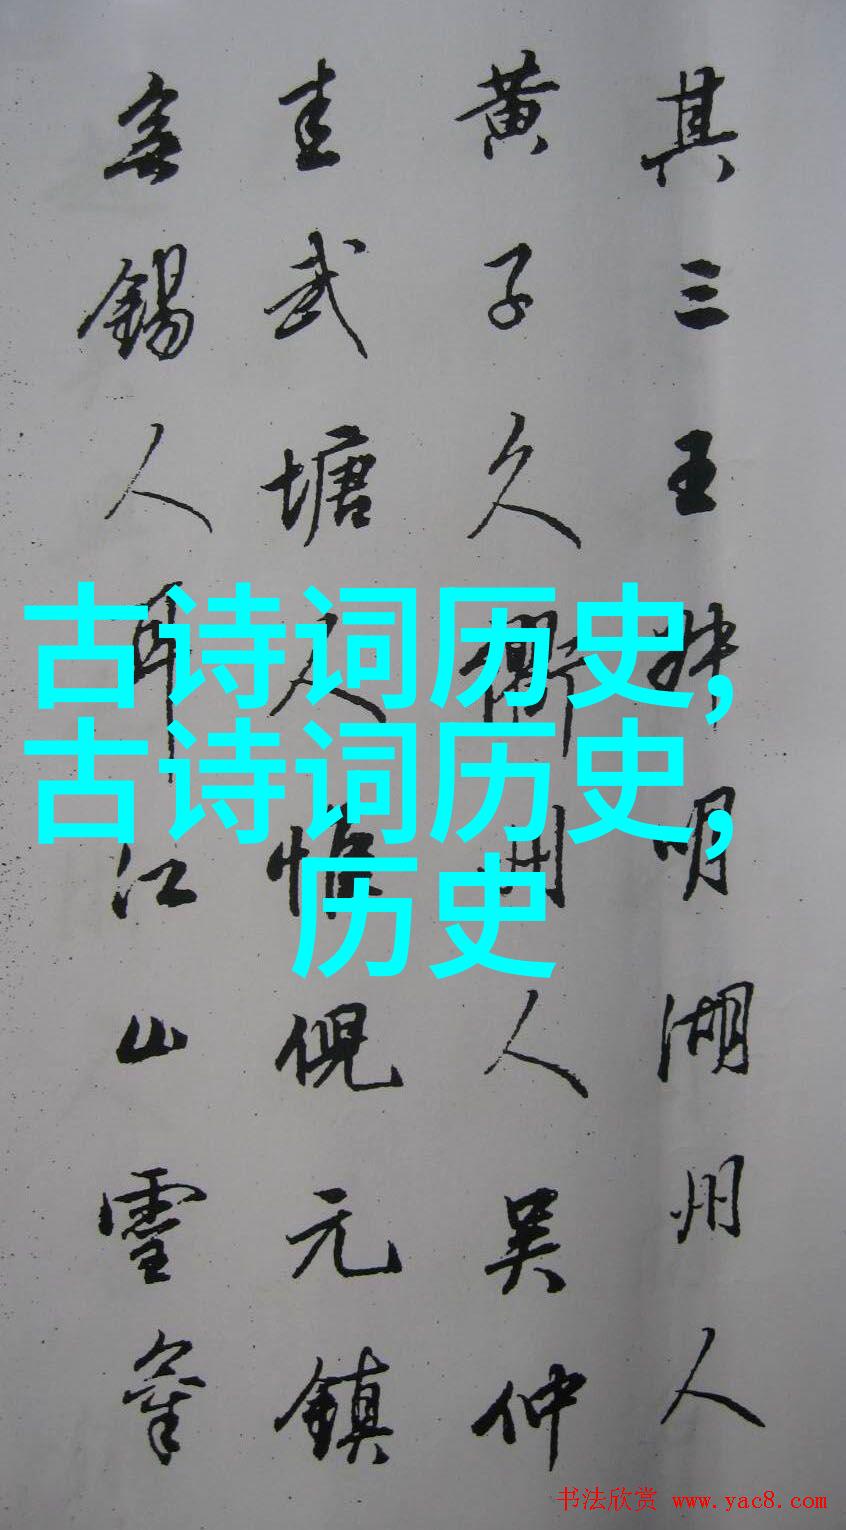 其三王叔明湖州人
黄子久衢州人吴仲
圭武塘人惟倪元镇
無锡人耳江山灵气
古诗词历史,
古诗词历史,
历史
书法欣赏 www.yac8.com